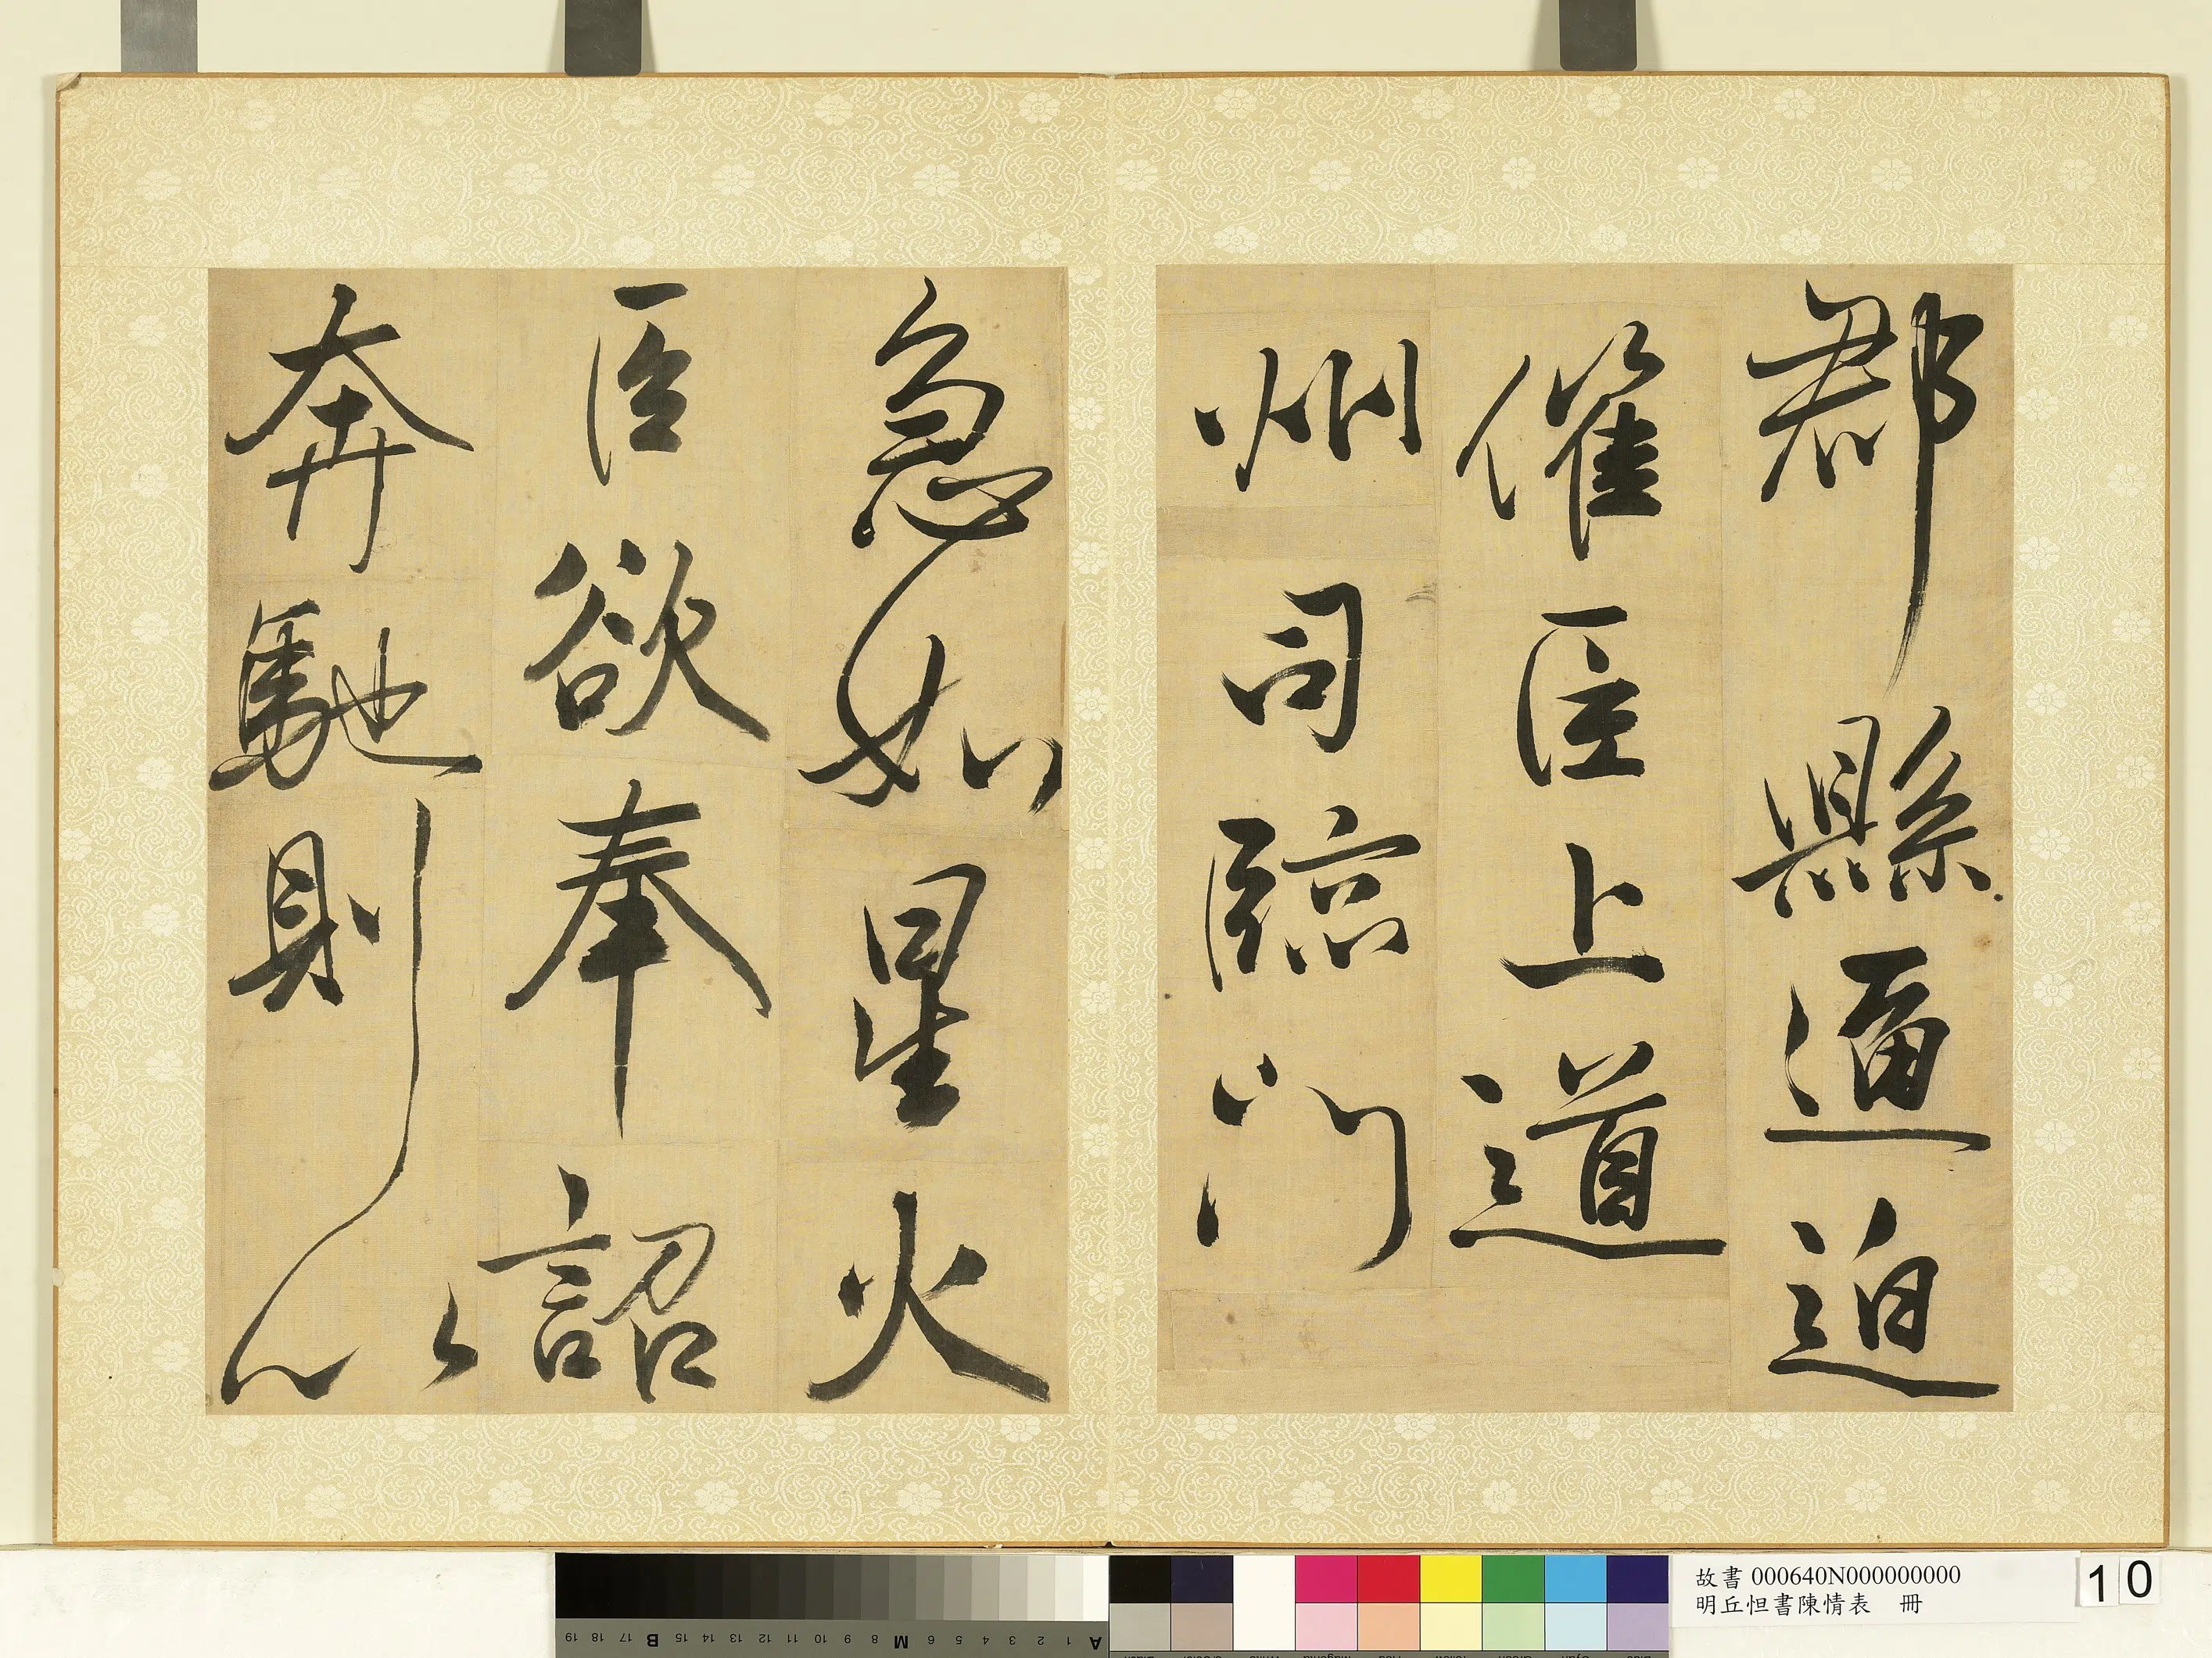 郡縣逼迫
催臣上道
州司臨門
急如星火
臣欲奉詔
奔馳則以
故書 000640N000000000
明丘怛書陳情表 冊
10
A 1 2 3 4 5 6 M 8 9 10 11 12 13 14 15 B 17 18 19